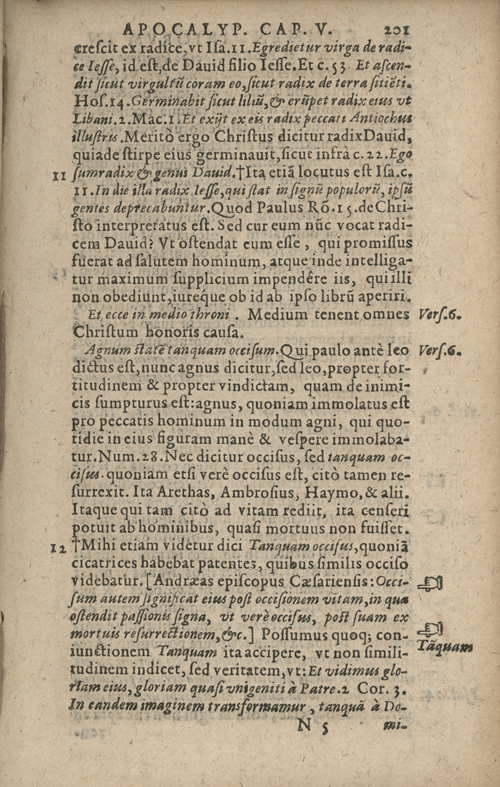 APOCALYP. CAP. V. 201
crescit ex radice, vt Isa. 11. Egredietur virga de radi-
ce Iesse, id est, de Dauid filio Iesse. Et c. 53 Et ascen-
dit sicut virgultũ coram eo, sicut radix de terra sitiẽti.
Hos. 14. Germinabit sicut liliũ, & erũpet radix eius vt
Libani. 2. Mac. 1. Et exijt ex eis radix peccati Antiochus
illustris. Meritò ergo Christus dicitur radix Dauid,
quia de stirpe eius germinauit, sicut infrà c. 22. Ego
sum radix & genus Dauid. †Ita etiã locutus est Isa. c.
11
11. In die illa radix Iesse, qui stat in signũ populorũ, ipsũ
gentes deprecabuntur. Quod Paulus Rõ. 15. de Chri-
sto interpretatus est. Sed cur eum nũc vocat radi-
cem Dauid? Vt ostendat eum esse, qui promissus
fuerat ad salutem hominum, atque inde intelliga-
tur maximum supplicium impendêre iis, qui illi
non obediunt, iureque ob id ab ipso librũ aperiri.
Et ecce in medio throni. Medium tenent omnes
Vers. 6.
Christum honoris causa.
Agnum statẽ tanquam occisum. Qui paulo antè leo
Vers. 6.
dictus est, nunc agnus dicitur, sed leo, propter for-
titudinem & propter vindictam, quam de inimi-
cis sumpturus est: agnus, quoniam immolatus est
pro peccatis hominum in modum agni, qui quo-
tidie in eius figuram manè & vespere immolaba-
tur. Num. 28. Nec dicitur occisus, sed tanquam oc-
cisus. quoniam etsi verè occisus est, citò tamen re-
surrexit. Ita Arethas, Ambrosius, Haymo, & alii.
Itaque qui tam citò ad vitam rediit, ita censeri
potuit ab hominibus, quasi mortuus non fuisset.
12
†Mihi etiam videtur dici Tanquam occisus, quoniã
cicatrices habebat patentes, quibus similis occiso
videbatur. [Andræas episcopus Cæsariensis: Occi-
sum autem significat eius post occisionem vitam, in qua
ostendit passionis signa, vt verè occisus, post suam ex
mortuis resurrectionem, &c.] Possumus quoq; con-
iunctionem Tanquam ita accipere, vt non simili-
Tãquam
tudinem indicet, sed veritatem, vt: Et vidimus glo-
riam eius, gloriam quasi vnigeniti à Patre. 2 Cor. 3.
In eandem imaginem transformamur, tanquã à Do-
N 5 mi-